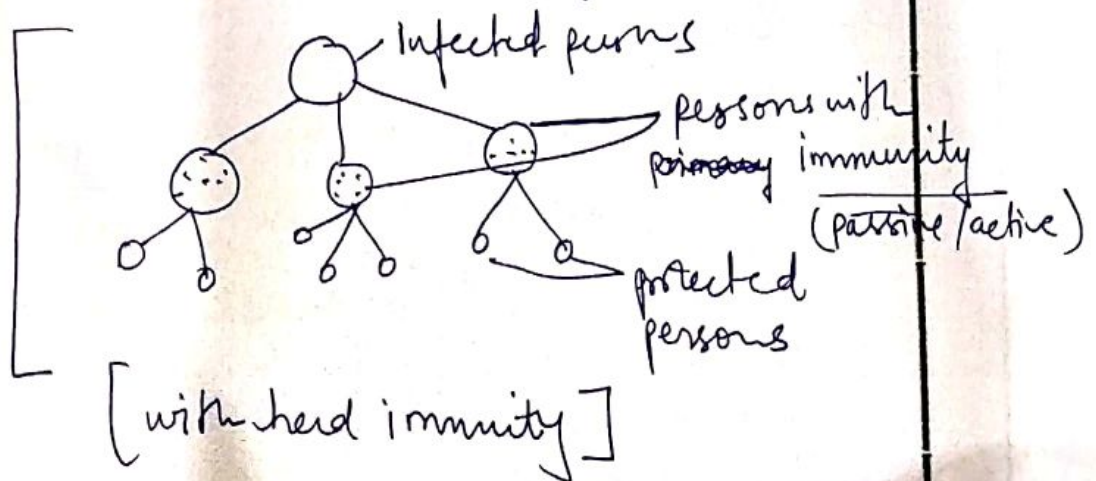 Infected persons
persons with
immunity
(passive/active)
protected
persons
[with herd immunity]